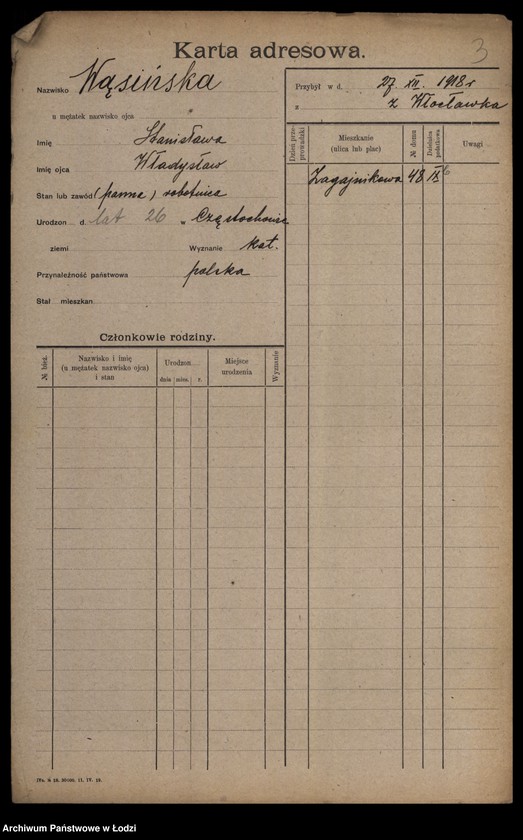 Karta adresowa.
3
Nazwisko Wąsińska
u mężatek nazwisko ojca
Imię Stanisława
Imię ojca Władysław
Stan lub zawód (panna) robotnica
Urodzon d. lat 26 w Częstochowie
ziemi Wyznanie kat.
Przynależność państwowa polska
Stał mieszkan
Członkowie rodziny.
№ bież. Nazwisko i imię (u mężatek nazwisko ojca) i stan Urodzon dnia mies. r. Miejsce urodzenia Wyznanie
Przybył w d. 27 XII. 1918 r
z z Włocławka
Dzień przeprowadzki Mieszkanie (ulica lub plac) № domu Dzielnica podatkowa Uwagi
Zagajnikowa 48 IX b
Archiwum Państwowe w Łodzi